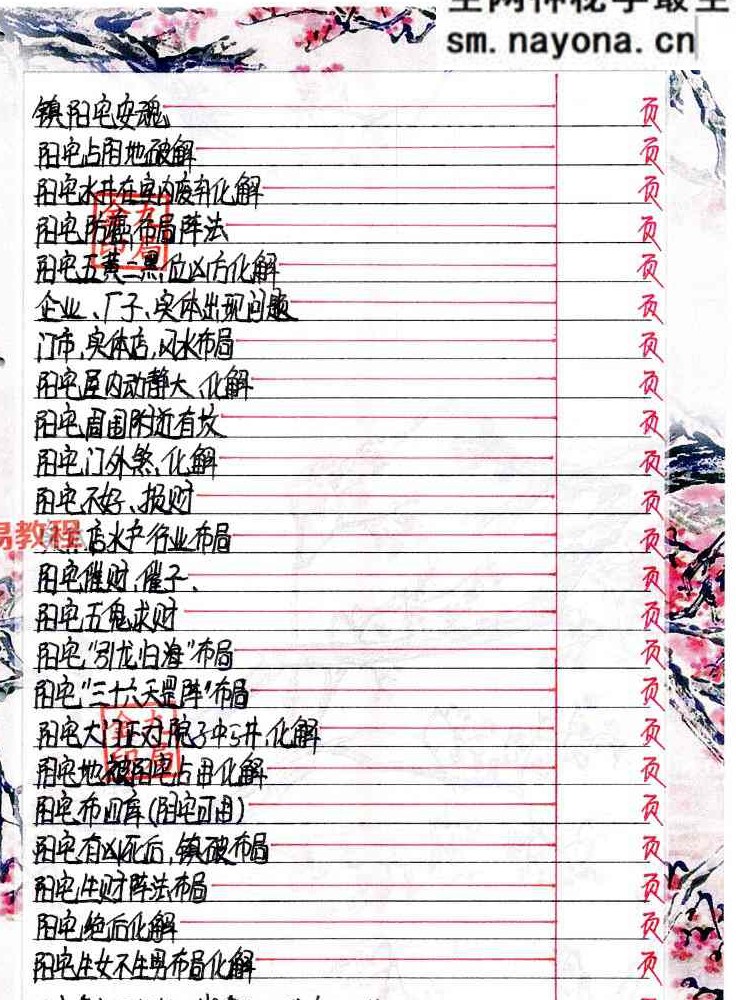 sm.nayona.cn
镇阳宅安魂 页
阳宅占用地破解 页
阳宅水井在室内废弃化解 页
阳宅防 布局阵法 页
阳宅五黄二黑位凶方化解 页
企业、厂子、实体出现问题 页
门市,实体店,风水布局 页
阳宅屋内动静大、化解 页
阳宅周围附近有坟 页
阳宅门外煞,化解 页
阳宅不好、损财 页
店水产行业布局 页
易教程
阳宅催财,催子、 页
阳宅五鬼求财 页
阳宅“引龙归海”布局 页
阳宅“三十六天罡阵”布局 页
阳宅大门正对院子中与井,化解 页
阳宅地被阴宅占用化解 页
阳宅布四库(阴宅可用) 页
阳宅有凶死后,镇破布局 页
阳宅生财阵法布局 页
阳宅绝后化解 页
阳宅生女不生男布局化解 页